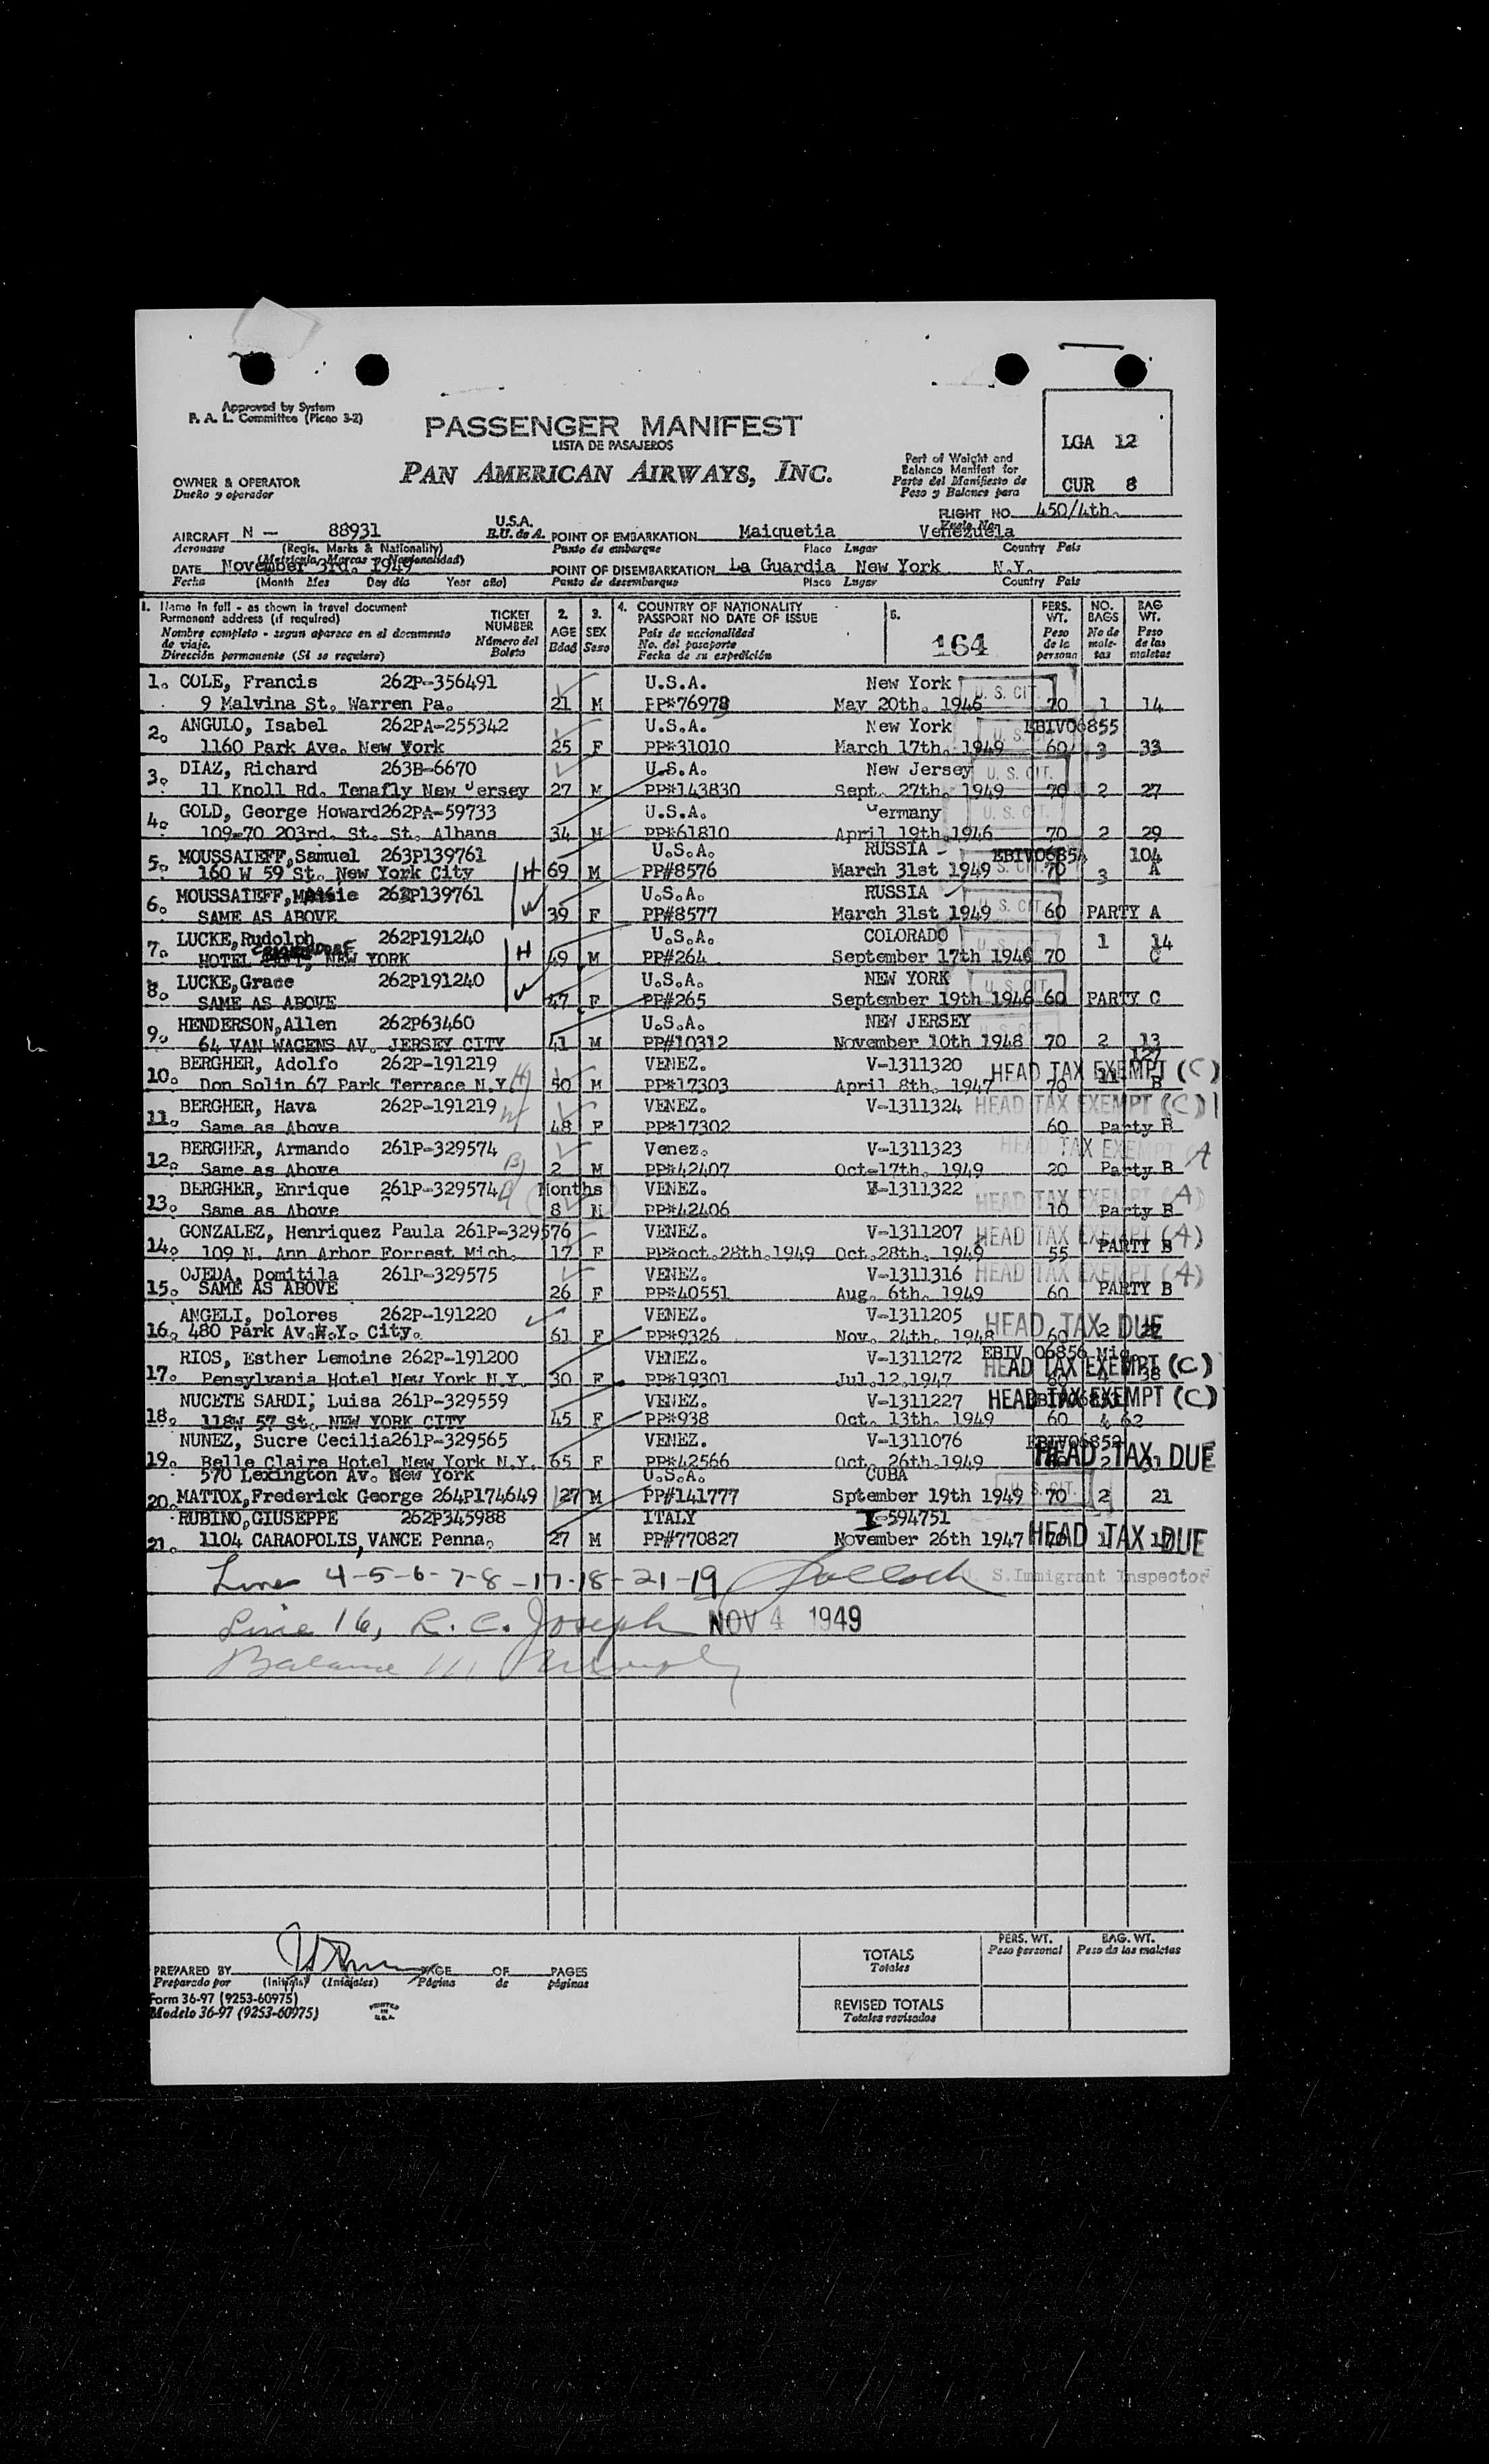 Approved by System
P. A. L. Committee (Picao 3-2)
PASSENGER MANIFEST
LISTA DE PASAJEROS
PAN AMERICAN AIRWAYS, INC.
OWNER & OPERATOR
Dueño y operador
Part of Weight and
Balance Manifest for
Parte del Manifiesto de
Peso y Balance para
LGA 12
CUR 8
FLIGHT NO. 450/4th.
Vuelo No.
AIRCRAFT N - 88931 U.S.A. POINT OF EMBARKATION Maiquetia Venezuela
Aeronave (Regis. Marks & Nationality) E.U. de A. Punto de embarque Place Lugar Country País
(Matrícula, Marcas y Nacionalidad)
DATE November 3rd. 1949 POINT OF DISEMBARKATION La Guardia New York N.Y.
Fecha (Month Mes Day día Year año) Punto de desembarque Place Lugar Country País
1. Name in full - as shown in travel document
Permanent address (if required)
Nombre completo - segun aparece en el documento
de viaje.
Dirección permanente (Si se requiere)
TICKET NUMBER
Número del Boleto
2. AGE Edad
3. SEX Sexo
4. COUNTRY OF NATIONALITY
PASSPORT NO DATE OF ISSUE
País de nacionalidad
No. del pasaporte
Fecha de su expedición
5.
164
PERS. WT.
Peso de la persona
NO. BAGS
No de maletas
BAG WT.
Peso de las maletas
1. COLE, Francis 262P-356491 U.S.A. New York U. S. CIT.
9 Malvina St. Warren Pa. 21 M PP#76978 May 20th. 1946 70 1 14
2. ANGULO, Isabel 262PA-255342 U.S.A. New York EBIVO6855
1160 Park Ave. New York 25 F PP#31010 March 17th. 1949 60 3 33
3. DIAZ, Richard 263B-6670 U.S.A. New Jersey U. S. CIT.
11 Knoll Rd. Tenafly New Jersey 27 M PP#143830 Sept. 27th. 1949 70 2 27
4. GOLD, George Howard 262PA-59733 U.S.A. Germany U. S. CIT.
109-70 203rd. St. St. Albans 34 M PP#61810 April 19th.1946 70 2 29
5. MOUSSAIEFF,Samuel 263P139761 U.S.A. RUSSIA EBIVO6854 104
160 W 59 St. New York City H 69 M PP#8576 March 31st 1949 70 3 A
6. MOUSSAIEFF, 263P139761 U.S.A. RUSSIA
SAME AS ABOVE W 39 F PP#8577 March 31st 1949 60 PARTY A
7. LUCKE,Rudolph 262P191240 U.S.A. COLORADO 1 14
HOTEL NEW YORK H 49 M PP#264 September 17th 1946 70 C
8. LUCKE,Grace 262P191240 U.S.A. NEW YORK
SAME AS ABOVE W 47 F PP#265 September 19th 1946 60 PARTY C
9. HENDERSON,Allen 262P63460 U.S.A. NEW JERSEY
64 VAN WAGENS AV. JERSEY CITY 41 M PP#10312 November 10th 1948 70 2 13
10. BERGHER, Adolfo 262P-191219 VENEZ. V-1311320 HEAD TAX EXEMPT (C) 127
Don Solin 67 Park Terrace N.Y. H 50 M PP#17303 April 8th. 1947 70 11 B
11. BERGHER, Hava 262P-191219 VENEZ. V-1311324 HEAD TAX EXEMPT (C)
Same as Above W 48 F PP#17302 60 Party B
12. BERGHER, Armando 261P-329574 Venez. V-1311323 HEAD TAX EXEMPT A
Same as Above 2 M PP#42407 Oct-17th. 1949 20 Party B
13. BERGHER, Enrique 261P-329574 Months VENEZ. V-1311322 HEAD TAX EXEMPT (A)
Same as Above 8 M PP#42406 10 Party B
14. GONZALEZ, Henriquez Paula 261P-329576 VENEZ. V-1311207 HEAD TAX EXEMPT (A)
109 N. Ann Arbor Forrest Mich. 17 F PP#oct.28th.1949 Oct.28th. 1949 55 PARTY B
15. OJEDA, Domitila 261P-329575 VENEZ. V-1311316 HEAD TAX EXEMPT (A)
SAME AS ABOVE 26 F PP#40551 Aug. 6th. 1949 60 PARTY B
16. ANGELI, Dolores 262P-191220 VENEZ. V-1311205 HEAD TAX DUE
480 Park Av.N.Y. City. 61 F PP#9326 Nov. 24th. 1948 60 2 22
17. RIOS, Esther Lemoine 262P-191200 VENEZ. V-1311272 EBIV 06856 HEAD TAX EXEMPT (C)
Pensylvania Hotel New York N.Y. 30 F PP#19301 Jul.12.1947 60 38
18. NUCETE SARDI; Luisa 261P-329559 VENEZ. V-1311227 HEAD TAX EXEMPT (C)
118W 57 St. NEW YORK CITY 45 F PP#938 Oct. 13th. 1949 60 4 62
19. NUNEZ, Sucre Cecilia 261P-329565 VENEZ. V-1311076 HEAD TAX DUE
Belle Claire Hotel New York N.Y. 65 F PP#42566 Oct. 26th.1949 2
570 Lexington Av. New York U.S.A. CUBA
20. MATTOX,Frederick George 264P174649 27 M PP#141777 Sptember 19th 1949 70 2 21
RUBINO,GIUSEPPE 262P345988 ITALY I-594751
21. 1104 CARAOPOLIS,VANCE Penna. 27 M PP#770827 November 26th 1947 HEAD TAX DUE
Lines 4-5-6-7-8-17-18-21-19 Pollock U. S. Immigrant Inspector
Line 16, R. C. Joseph NOV 4 1949
Balance
PREPARED BY PAGE OF PAGES
Preparado por (Initials) (Iniciales) Página de páginas
Form 36-97 (9253-60975)
Modelo 36-97 (9253-60975)
PRINTED IN U.S.A.
PERS. WT. BAG. WT.
Peso personal Peso de las maletas
TOTALS
Totales
REVISED TOTALS
Totales revisados